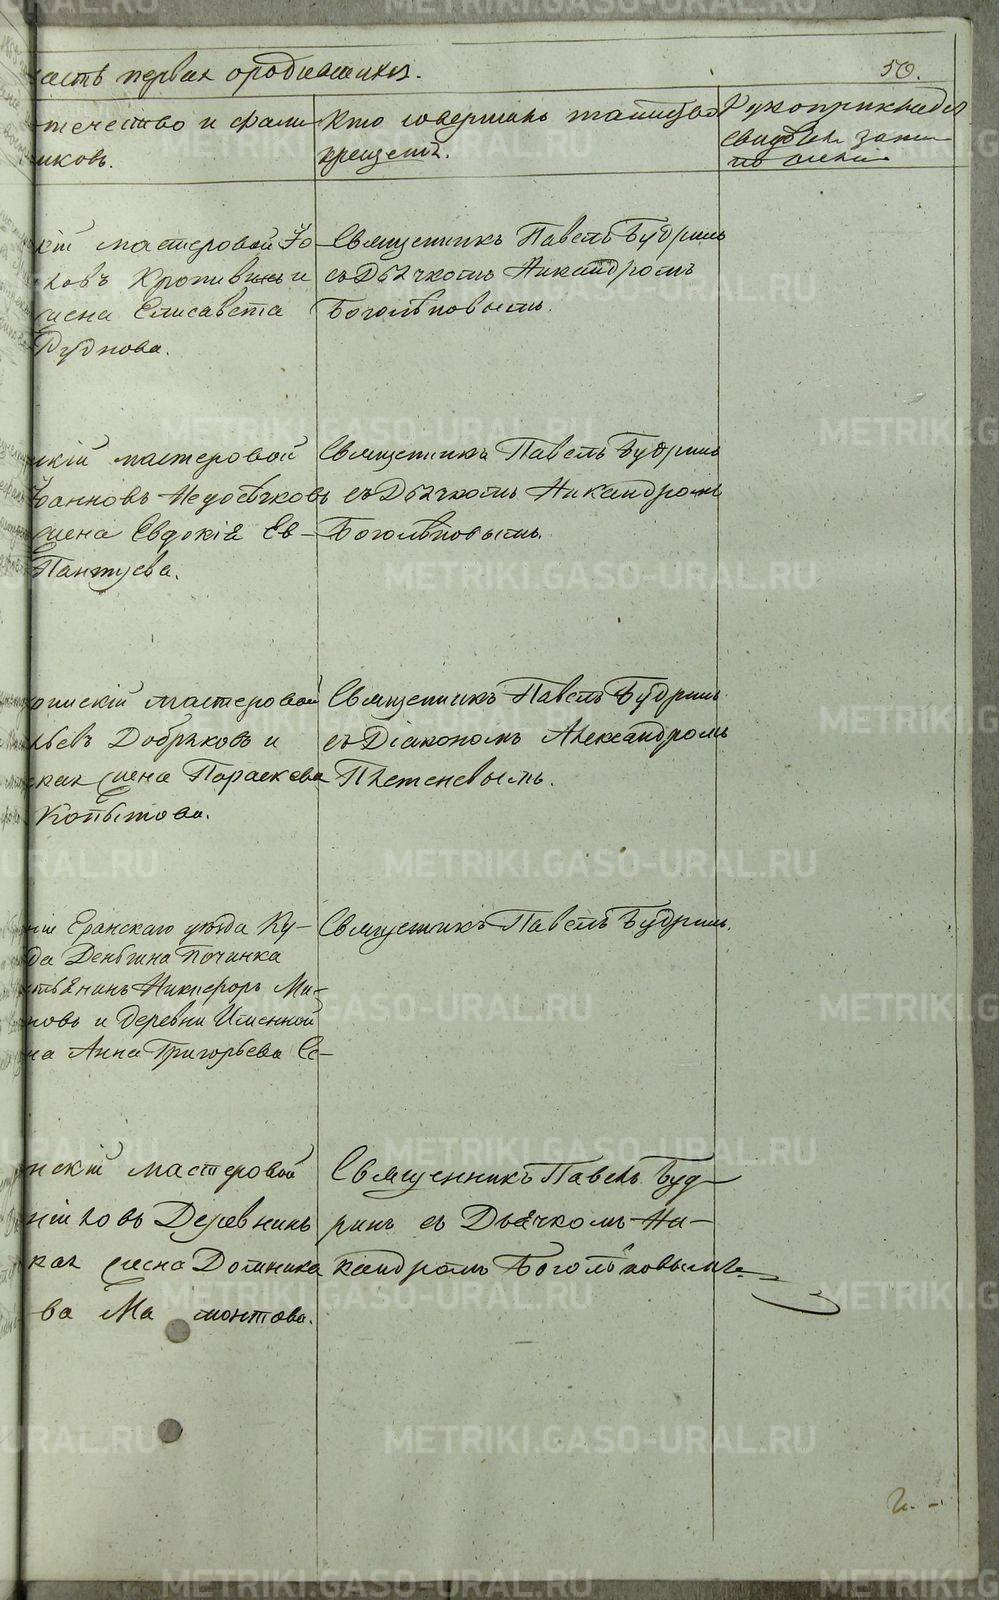 METRIKI.GASO-URAL.RU
асть первая о родившихся.
50.
течество и фами-
иковъ.
Кто совершалъ таинство
крещенія.
Рукоприкладство
свидѣтелей записи
по желанію
кій мастеровой Іо-
ковъ Кропивинъ и
жена Елисавета
Руднова.
Священникъ Павелъ Будринъ
съ Дьячкомъ Никандромъ
Боголѣповымъ.
скій мастеровой
Іоанновъ Недосѣковъ
жена Евдокія Ев-
Пантуева.
Священникъ Павелъ Будринъ
съ Дьячкомъ Никандромъ
Боголѣповымъ.
скій мастеровой
ьевъ Добряковъ и
ская жена Параскева
Копытова.
Священникъ Павелъ Будринъ
съ Діакономъ Александромъ
Плетеневымъ.
ніи Еранскаго уѣзда Ку-
да Деньгина Починка
стьянинъ Никифоръ Ми-
новъ и деревни
на Анна Григорьева Се-
Священникъ Павелъ Будринъ.
нскій мастеровой
ковъ Деревнинъ
кая жена Домника
ва Мамонтова.
Священникъ Павелъ Буд-
ринъ съ Дьячкомъ Ни-
кандромъ Боголѣповымъ.